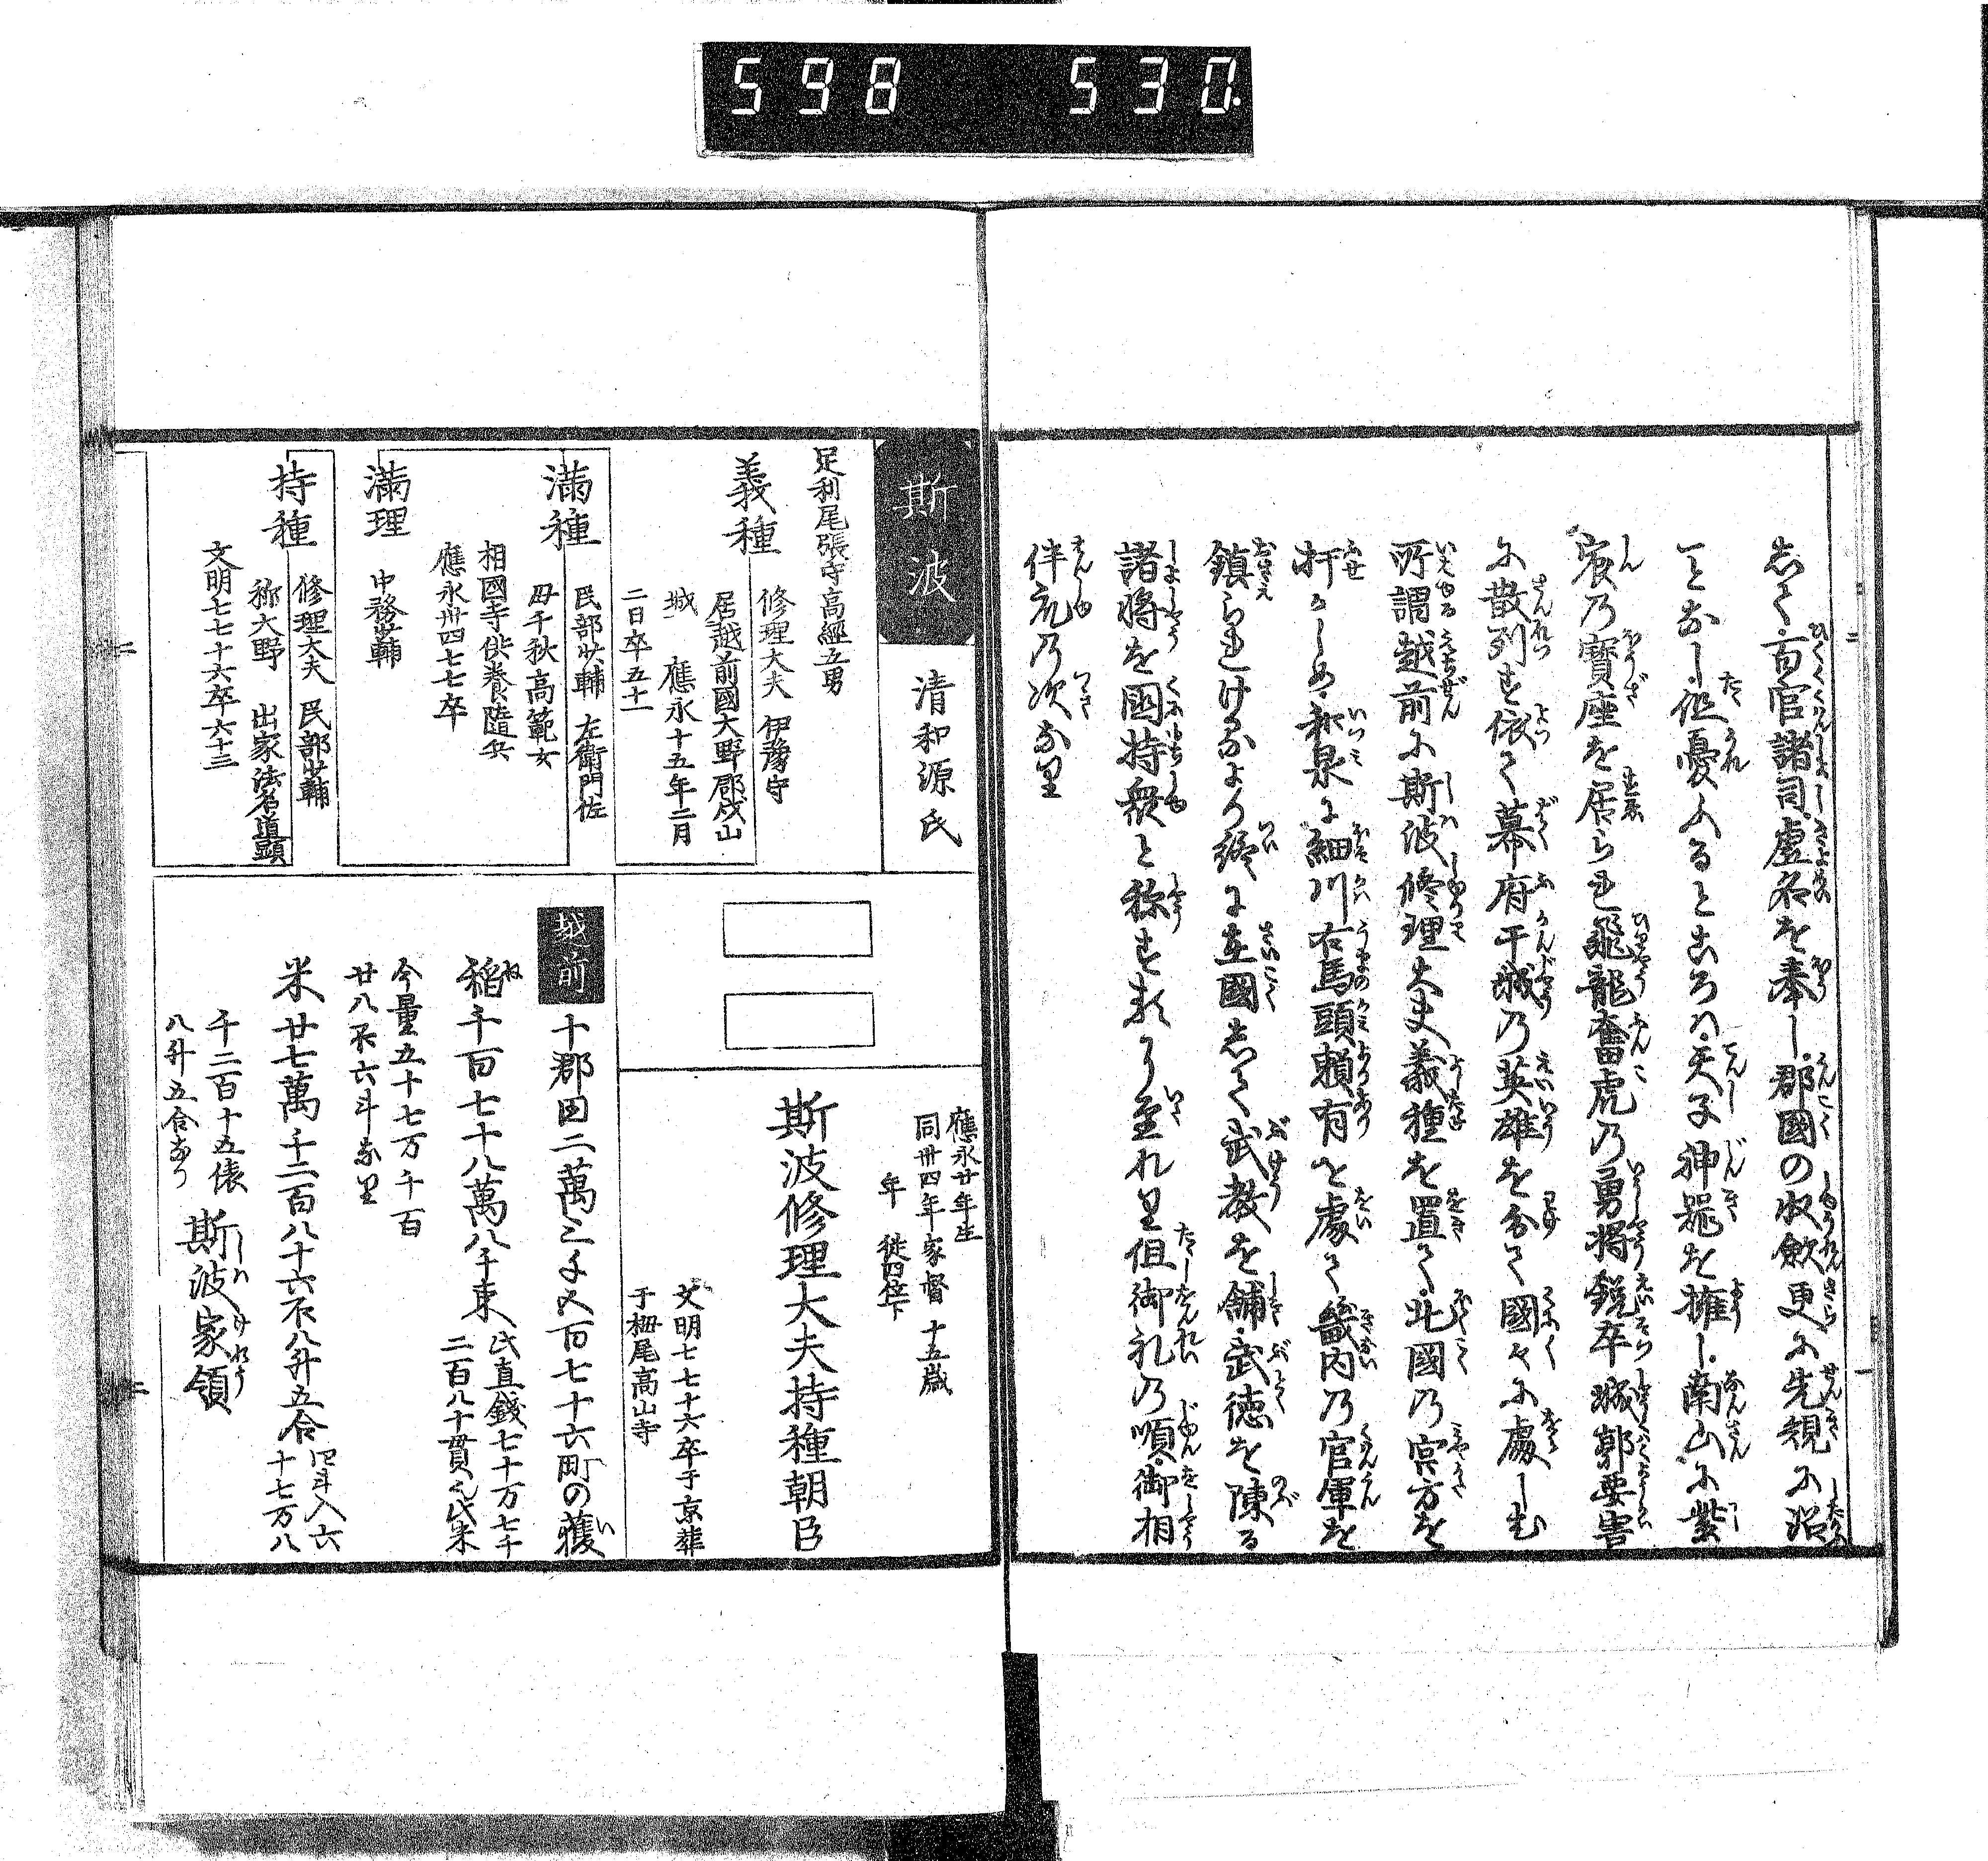 598 530.
志て百官諸司虚名を奉し郡國の收斂更に先規に沿
ことなし但憂ふるところハ天子神器を擁し南山に紫
宸乃寶座を居られ飛龍奮虎乃勇将鋭卒城郭要害
に散列す依て幕府干城乃英雄を分て國々に處しむ
所謂越前に斯波修理大夫義種を置て北國乃寇方を
扞かしめ和泉に細川右馬頭頼有を處て畿内乃官軍を
鎮られけるより終に在國志て武教を舗武徳を陳る
諸将を國持衆と称す
至れり但御礼乃順御相
伴衆乃次なり
斯波
清和源氏
足利尾張守高經五男
義種
修理大夫 伊豫守
居越前國大野郡戌山
城 應永十五年二月
二日卒五十一
満種
民部少輔 左衛門佐
母千秋高範女
相國寺供養隨兵
應永卅四七七卒
満理
中務少輔
持種
修理大夫 民部少輔
称大野 出家法名道顕
文明七七十六卒六十三
應永廿年生
同卅四年家督 十五歳
年 従四位下
斯波修理大夫持種朝臣
文明七七十六卒于京葬
于栂尾高山寺
越前
十郡田二萬三千又百七十六町の穫
稲千百七十八萬八千束
此直銭七十万七千
二百八十貫文此米
今量五十七万千百
廿八石六斗なり
米廿七萬千二百八十六石八升五合
四斗入六
十七万八
千二百十五俵
八升五合なり
斯波家領
二
二